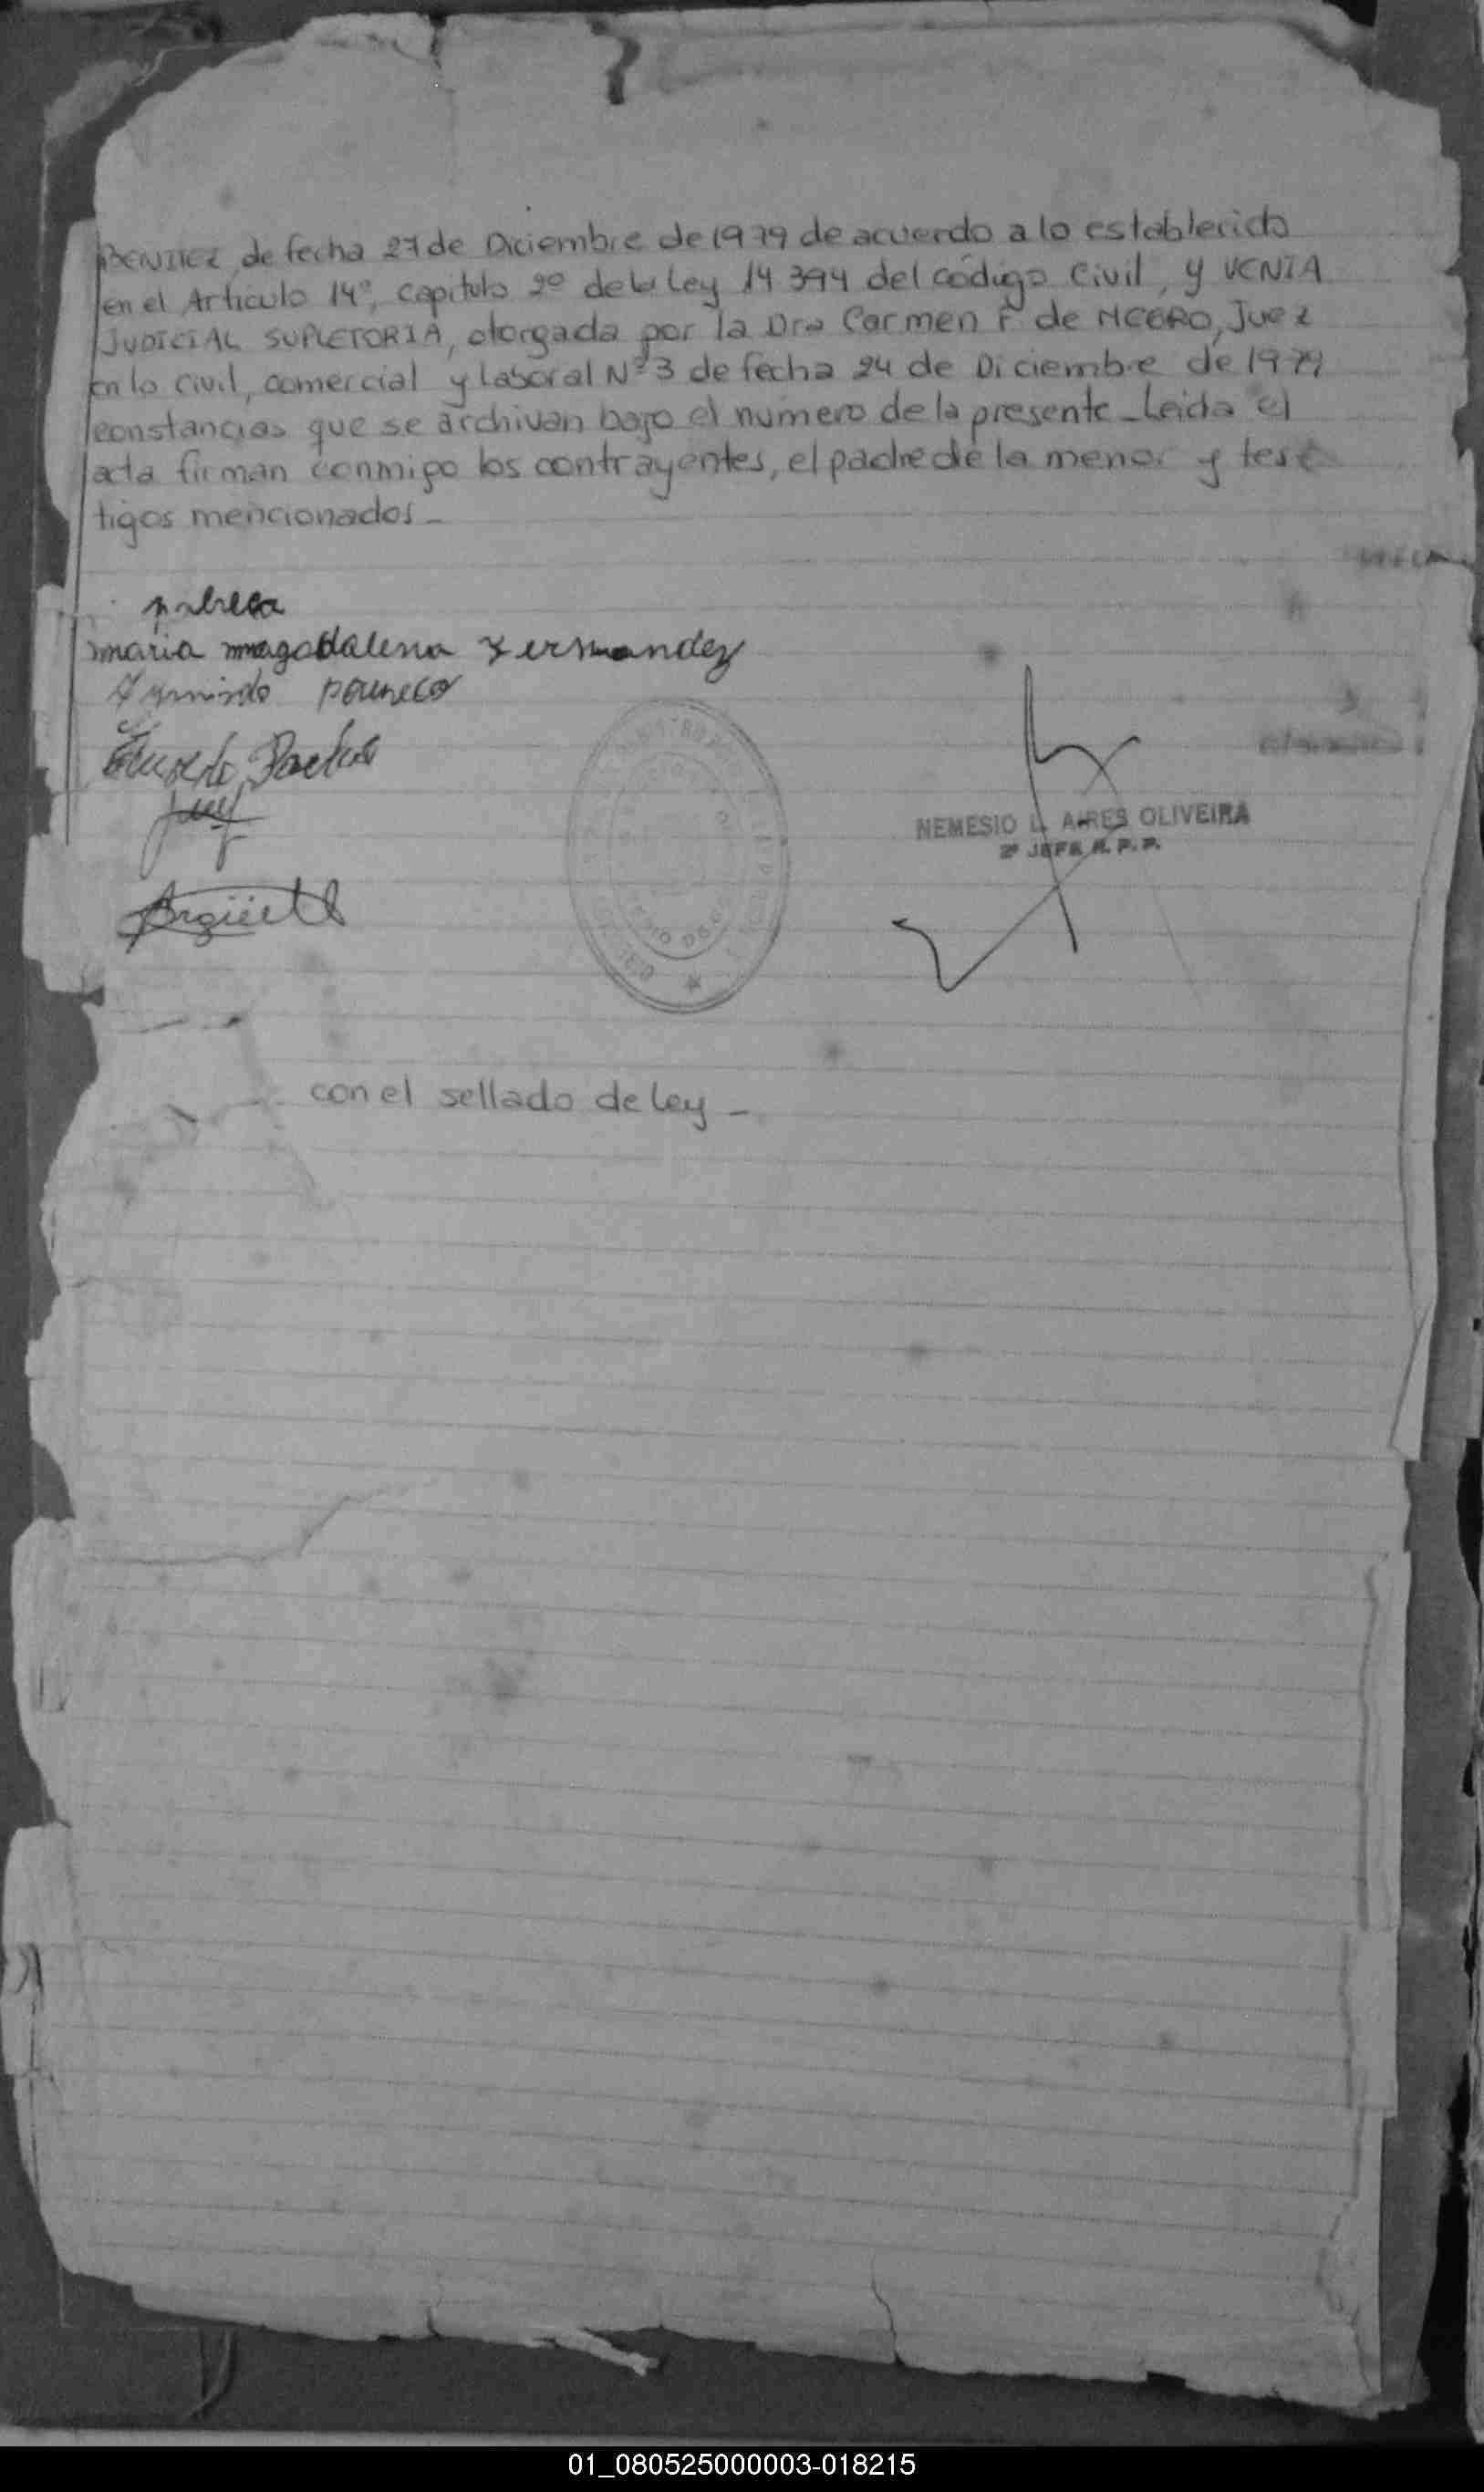 BENITEZ, de fecha 27 de Diciembre de 1979 de acuerdo a lo establecido
en el Articulo 14º, capitulo 2º de la Ley 14394 del código Civil, y VENIA
JUDICIAL SUPLETORIA, otorgada por la Dra Carmen F. de NEGRO, Juez
en lo Civil, comercial y laboral Nº 3 de fecha 24 de Diciembre de 1979
constancias que se archivan bajo el numero de la presente - Leida el
acta firman conmigo los contrayentes, el padre de la menor y tes
tigos mencionados -
maria magadalena Fernandez
NEMESIO L. AIRES OLIVEIRA
2º JEFE R. P. P.
con el sellado de ley -
01_080525000003-018215